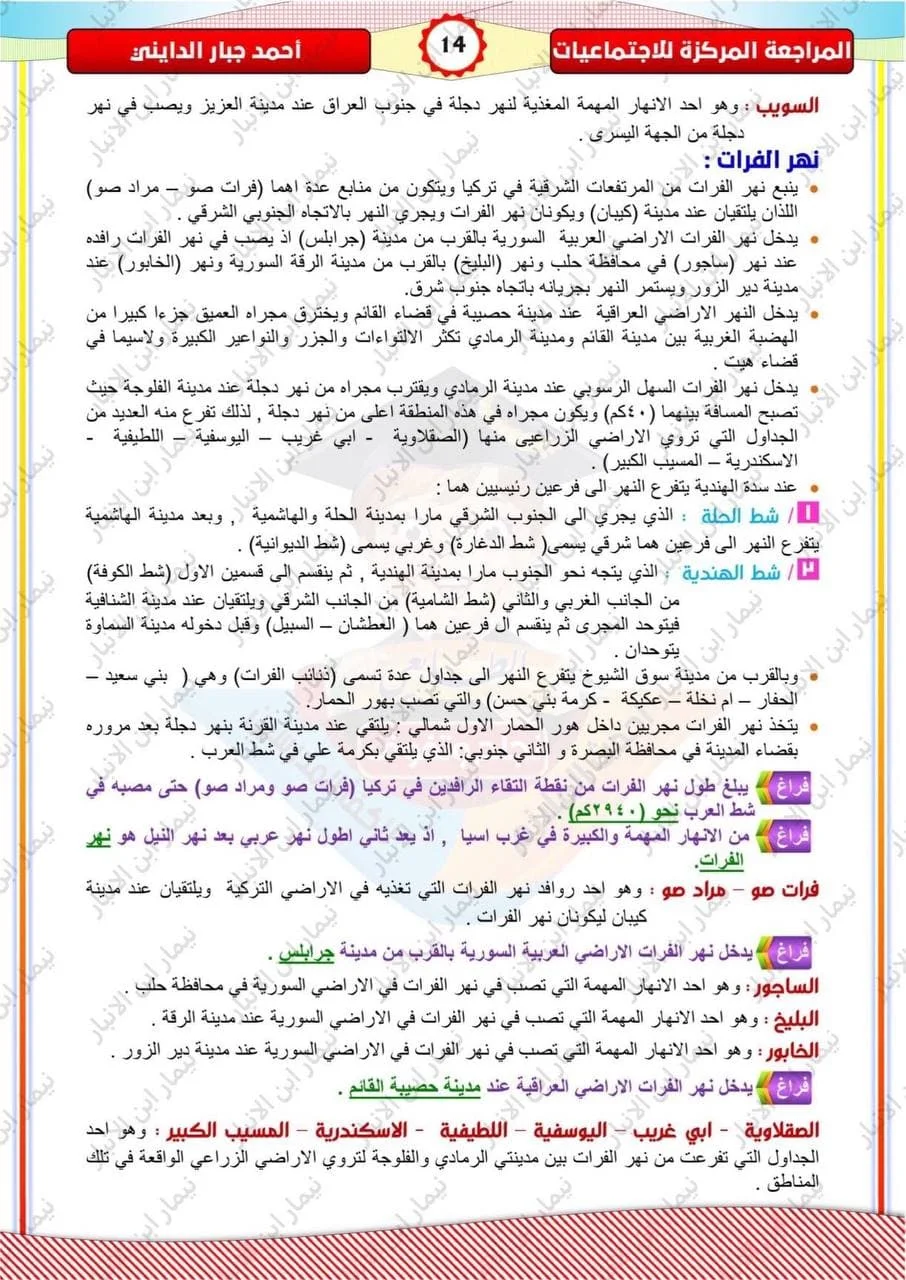 المراجعة المركزة للاجتماعيات
14
أحمد جبار الدايني
السويب : وهو احد الانهار المهمة المغذية لنهر دجلة في جنوب العراق عند مدينة العزيز ويصب في نهر
دجلة من الجهة اليسرى .
نهر الفرات :
• ينبع نهر الفرات من المرتفعات الشرقية في تركيا ويتكون من منابع عدة اهما (فرات صو – مراد صو)
اللذان يلتقيان عند مدينة (كيبان) ويكونان نهر الفرات ويجري النهر بالاتجاه الجنوبي الشرقي .
• يدخل نهر الفرات الاراضي العربية السورية بالقرب من مدينة (جرابلس) اذ يصب في نهر الفرات رافده
عند نهر (ساجور) في محافظة حلب ونهر (البليخ) بالقرب من مدينة الرقة السورية ونهر (الخابور) عند
مدينة دير الزور ويستمر النهر بجريانه باتجاه جنوب شرق.
• يدخل النهر الاراضي العراقية عند مدينة حصيبة في قضاء القائم ويخترق مجراه العميق جزءا كبيرا من
الهضبة الغربية بين مدينة القائم ومدينة الرمادي تكثر الالتواءات والجزر والنواعير الكبيرة ولاسيما في
قضاء هيت .
• يدخل نهر الفرات السهل الرسوبي عند مدينة الرمادي ويقترب مجراه من نهر دجلة عند مدينة الفلوجة حيث
تصبح المسافة بينهما (٤٠كم) ويكون مجراه في هذه المنطقة اعلى من نهر دجلة , لذلك تفرع منه العديد من
الجداول التي تروي الاراضي الزراعيى منها (الصقلاوية - ابي غريب – اليوسفية – اللطيفية -
الاسكندرية – المسيب الكبير) .
• عند سدة الهندية يتفرع النهر الى فرعين رئيسيين هما :
١/ شط الحلة : الذي يجري الى الجنوب الشرقي مارا بمدينة الحلة والهاشمية , وبعد مدينة الهاشمية
يتفرع النهر الى فرعين هما شرقي يسمى( شط الدغارة) وغربي يسمى (شط الديوانية) .
٢/ شط الهندية : الذي يتجه نحو الجنوب مارا بمدينة الهندية , ثم ينقسم الى قسمين الاول (شط الكوفة)
من الجانب الغربي والثاني (شط الشامية) من الجانب الشرقي ويلتقيان عند مدينة الشنافية
فيتوحد المجرى ثم ينقسم ال فرعين هما ( العطشان – السبيل) وقبل دخوله مدينة السماوة
يتوحدان .
• وبالقرب من مدينة سوق الشيوخ يتفرع النهر الى جداول عدة تسمى (ذنائب الفرات) وهي ( بني سعيد –
الحفار – ام نخلة – عكيكة - كرمة بني حسن) والتي تصب بهور الحمار.
• يتخذ نهر الفرات مجريين داخل هور الحمار الاول شمالي : يلتقي عند مدينة القرنة بنهر دجلة بعد مروره
بقضاء المدينة في محافظة البصرة و الثاني جنوبي: الذي يلتقي بكرمة علي في شط العرب .
فراغ يبلغ طول نهر الفرات من نقطة التقاء الرافدين في تركيا (فرات صو ومراد صو) حتى مصبه في
شط العرب نحو (٢٩٤٠كم) .
فراغ من الانهار المهمة والكبيرة في غرب اسيا , اذ يعد ثاني اطول نهر عربي بعد نهر النيل هو نهر
الفرات.
فرات صو – مراد صو : وهو احد روافد نهر الفرات التي تغذيه في الاراضي التركية ويلتقيان عند مدينة
كيبان ليكونان نهر الفرات .
فراغ يدخل نهر الفرات الاراضي العربية السورية بالقرب من مدينة جرابلس .
الساجور : وهو احد الانهار المهمة التي تصب في نهر الفرات في الاراضي السورية في محافظة حلب .
البليخ : وهو احد الانهار المهمة التي تصب في نهر الفرات في الاراضي السورية عند مدينة الرقة .
الخابور : وهو احد الانهار المهمة التي تصب في نهر الفرات في الاراضي السورية عند مدينة دير الزور .
فراغ يدخل نهر الفرات الاراضي العراقية عند مدينة حصيبة القائم .
الصقلاوية - ابي غريب – اليوسفية – اللطيفية - الاسكندرية – المسيب الكبير : وهو احد
الجداول التي تفرعت من نهر الفرات بين مدينتي الرمادي والفلوجة لتروي الاراضي الزراعي الواقعة في تلك
المناطق .
نيمار ابن الانبار